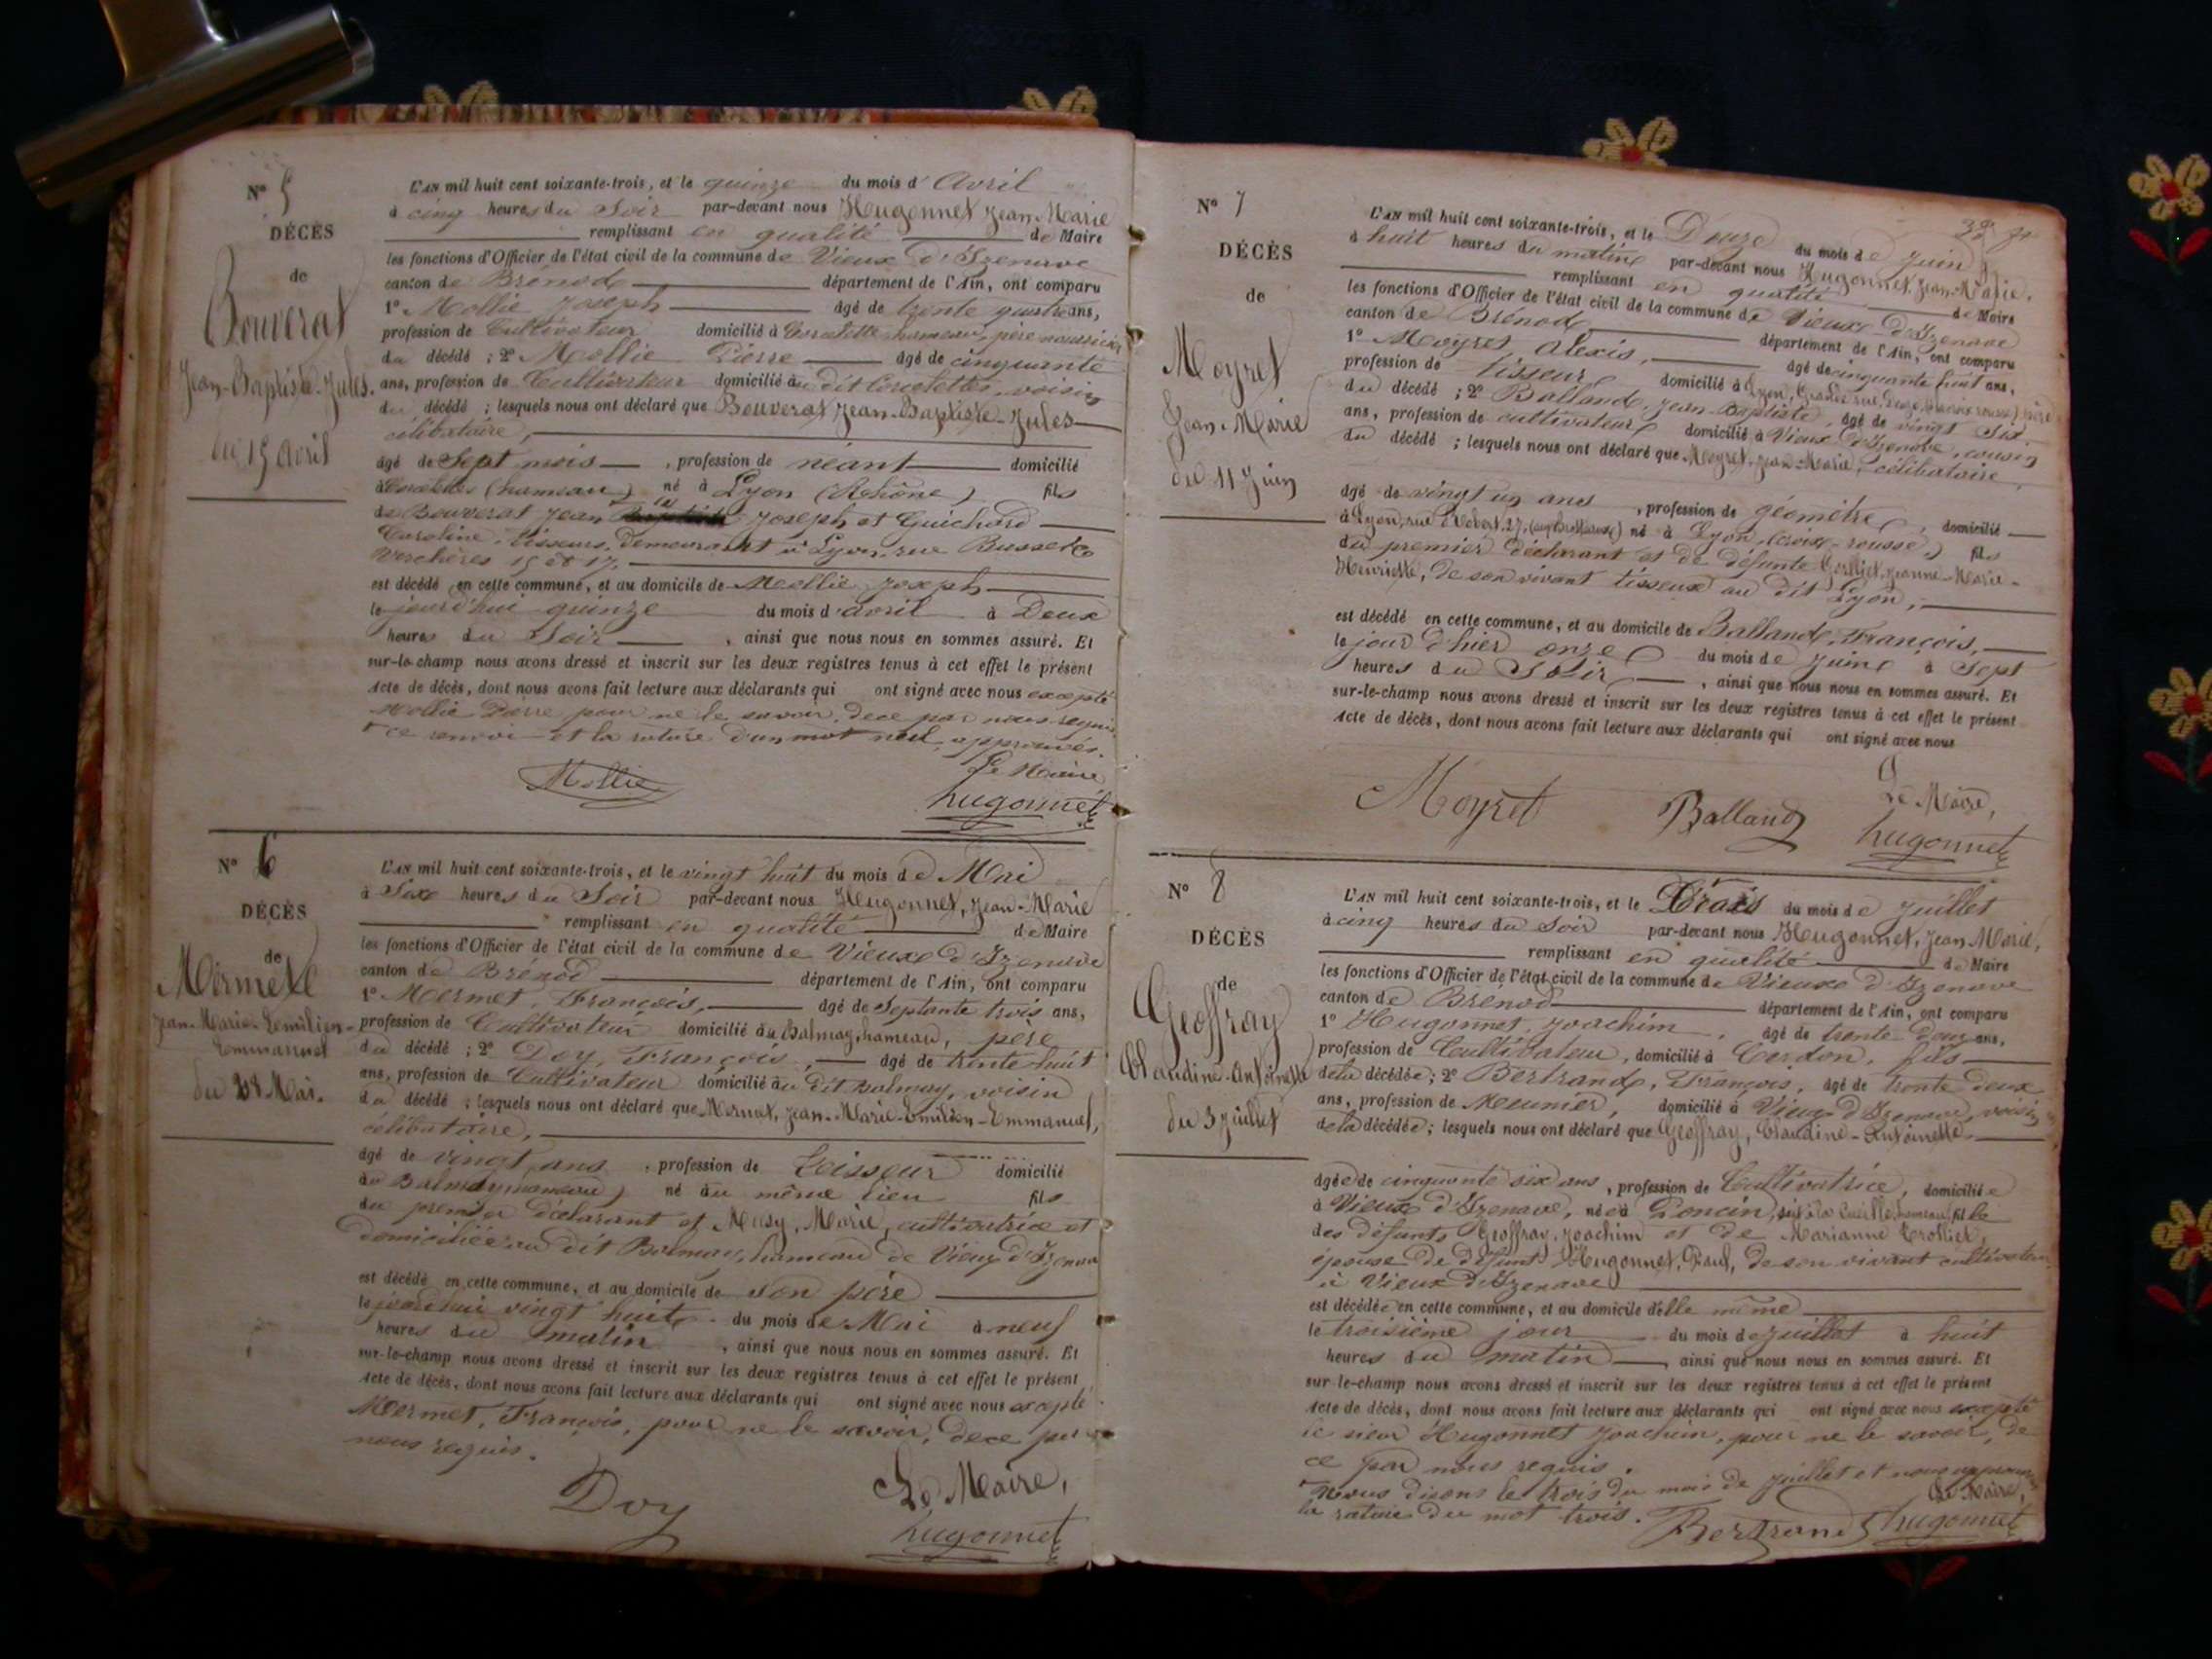 N° 5
DÉCÈS
de
Bouverat
Jean-Baptiste-Jules.
du 15 avril
L'AN mil huit cent soixante-trois, et le quinze du mois d'Avril
à cinq heures du Soir par-devant nous Hugonnet Jean-Marie
remplissant en qualité de Maire
les fonctions d'Officier de l'état civil de la commune de Vieux d'Izenave
canton de Brénod département de l'Ain, ont comparu
1° Mollie Joseph âgé de trente quatre ans,
profession de Cultivateur domicilié à hameau, père nourricier
du décédé ; 2° Mollie Pierre âgé de cinquante
ans, profession de Cultivateur domicilié au dit voisin
du décédé ; lesquels nous ont déclaré que Bouverat Jean-Baptiste-Jules
célibataire,
âgé de Sept mois , profession de néant domicilié
(hameau) né à Lyon (Rhône) fils
de Bouverat Jean Joseph et Guichard
Caroline, tisseurs, demeurant à Lyon, rue
Verchères 15 et 17.
est décédé en cette commune, et au domicile de Mollie Joseph
le jourd'hui quinze du mois d'avril à Deux
heures du Soir , ainsi que nous nous en sommes assuré. Et
sur-le-champ nous avons dressé et inscrit sur les deux registres tenus à cet effet le présent
Acte de décès, dont nous avons fait lecture aux déclarants qui ont signé avec nous excepté
Mollie Pierre pour ne le savoir, de ce par nous requis
ce renvoi et la rature d'un mot nul, approuvés.
Le Maire
Mollie hugonnet
N° 6
DÉCÈS
de
Mermet
Jean-Marie-Emilien-
Emmanuel
du 28 Mai.
L'AN mil huit cent soixante-trois, et le vingt huit du mois de Mai
à Six heures du Soir par-devant nous Hugonnet, Jean-Marie
remplissant en qualité de Maire
les fonctions d'Officier de l'état civil de la commune de Vieux d'Izenave
canton de Brénod département de l'Ain, ont comparu
1° Mermet, François, âgé de Septante trois ans,
profession de Cultivateur domicilié au Balmay, hameau, père
du décédé ; 2° Doy, François, âgé de trente huit
ans, profession de Cultivateur domicilié au dit Balmay, voisin
du décédé ; lesquels nous ont déclaré que Mermet, Jean-Marie-Emilien-Emmanuel,
célibataire,
âgé de vingt ans , profession de domicilié
au Balmay (hameau) né au même lieu fils
du premier déclarant et Musy, Marie, cultivatrice et
domiciliée au dit Balmay, hameau de Vieux d'Izenave
est décédé en cette commune, et au domicile de son père
le jourd'hui vingt huit du mois de Mai à neuf
heures du matin , ainsi que nous nous en sommes assuré. Et
sur-le-champ nous avons dressé et inscrit sur les deux registres tenus à cet effet le présent
Acte de décès, dont nous avons fait lecture aux déclarants qui ont signé avec nous excepté
Mermet, François, pour ne le savoir, de ce par
nous requis.
Le Maire,
Doy hugonnet
N° 7
DÉCÈS
de
Moyret
Jean-Marie
du 11 Juin
L'AN mil huit cent soixante-trois, et le Douze du mois de Juin
à huit heures du matin par-devant nous Hugonnet, Jean-Marie,
remplissant en qualité de Maire
les fonctions d'Officier de l'état civil de la commune de Vieux-d'Izenave
canton de Brénod département de l'Ain, ont comparu
1° Moyret Alexis, âgé de cinquante huit ans,
profession de tisseur domicilié à Lyon, Grande rue, père
du décédé ; 2° Balland, Jean-Baptiste, âgé de vingt Six
ans, profession de cultivateur domicilié à Vieux d'Izenave, cousin
du décédé ; lesquels nous ont déclaré que Moyret, Jean-Marie, célibataire,
âgé de vingt un ans , profession de géomètre , domicilié
à Lyon, rue né à Lyon, (croix-rousse) fils
du premier déclarant et de défunte Jeanne-Marie-
Henriette, de son vivant tisseuse au dit Lyon,
est décédé en cette commune, et au domicile de Balland, François,
le jour d'hier onze du mois de Juin à Sept
heures du Soir , ainsi que nous nous en sommes assuré. Et
sur-le-champ nous avons dressé et inscrit sur les deux registres tenus à cet effet le présent
Acte de décès, dont nous avons fait lecture aux déclarants qui ont signé avec nous
Le Maire,
Moyret Balland hugonnet
N° 8
DÉCÈS
de
Geoffray
Claudine-Antoinette
du 3 Juillet
L'AN mil huit cent soixante-trois, et le Trois du mois de Juillet
à cinq heures du Soir par-devant nous Hugonnet, Jean Marie,
remplissant en qualité de Maire
les fonctions d'Officier de l'état civil de la commune de Vieux d'Izenave
canton de Brénod département de l'Ain, ont comparu
1° Hugonnet, Joachim, âgé de trente deux ans,
profession de Cultivateur, domicilié à Cerdon, fils
de la décédée ; 2° Bertrand, François, âgé de trente deux
ans, profession de Meunier, domicilié à Vieux d'Izenave, voisin
de la décédée ; lesquels nous ont déclaré que Geoffray, Claudine-Antoinette
âgée de cinquante six ans , profession de Cultivatrice, domiciliée
à Vieux d'Izenave, née à Poncin, hameau, fille
des défunts Geoffray, Joachim et de Marianne Trolliet,
épouse de défunt Hugonnet, Paul, de son vivant cultivateur
à Vieux d'Izenave
est décédée en cette commune, et au domicile d'elle même
le troisième jour du mois de Juillet à huit
heures du matin , ainsi que nous nous en sommes assuré. Et
sur-le-champ nous avons dressé et inscrit sur les deux registres tenus à cet effet le présent
Acte de décès, dont nous avons fait lecture aux déclarants qui ont signé avec nous excepté
le sieur Hugonnet Joachim, pour ne le savoir, de
ce par nous requis.
nous disons le trois du mois de Juillet et nous approuvons
la rature du mot trois.
Le Maire,
Bertrand hugonnet